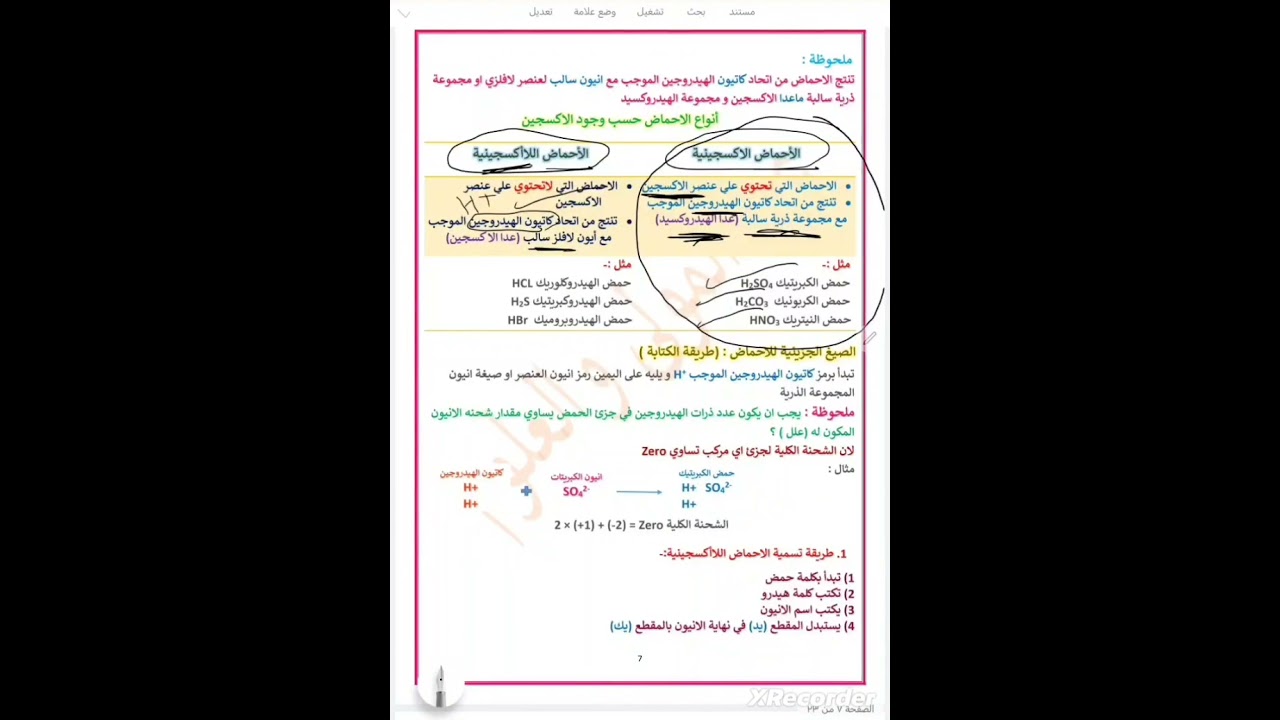 مستند بحث تشغيل وضع علامة تعديل
ملحوظة :
تنتج الاحماض من اتحاد كاتيون الهيدروجين الموجب مع انيون سالب لعنصر لافلزي او مجموعة
ذرية سالبة ماعدا الاكسجين و مجموعة الهيدروكسيد
أنواع الاحماض حسب وجود الاكسجين
الأحماض الاكسجينية
الاحماض التي تحتوي علي عنصر الاكسجين
تنتج من اتحاد كاتيون الهيدروجين الموجب
مع مجموعة ذرية سالبة (عدا الهيدروكسيد)
مثل :-
حمض الكبريتيك H₂SO₄
حمض الكربونيك H₂CO₃
حمض النيتريك HNO₃
الأحماض اللاأكسجينية
الاحماض التي لاتحتوي علي عنصر
الاكسجين
H+
تنتج من اتحاد كاتيون الهيدروجين الموجب
مع أيون لافلز سالب (عدا الاكسجين)
مثل :-
حمض الهيدروكلوريك HCL
حمض الهيدروكبريتيك H₂S
حمض الهيدروبروميك HBr
الصيغ الجزيئية للاحماض : (طريقة الكتابة )
تبدأ برمز كاتيون الهيدروجين الموجب H⁺ و يليه على اليمين رمز انيون العنصر او صيغة انيون
المجموعة الذرية
ملحوظة : يجب ان يكون عدد ذرات الهيدروجين في جزئ الحمض يساوي مقدار شحنه الانيون
المكون له (علل ) ؟
لان الشحنة الكلية لجزئ اي مركب تساوي Zero
مثال :
كاتيون الهيدروجين انيون الكبريتات حمض الكبريتيك
H+ + SO₄²⁻ → H+ SO₄²⁻
H+ H+
الشحنة الكلية 2 × (+1) + (-2) = Zero
1. طريقة تسمية الاحماض اللاأكسجينية:-
1) تبدأ بكلمة حمض
2) تكتب كلمة هيدرو
3) يكتب اسم الانيون
4) يستبدل المقطع (يد) في نهاية الانيون بالمقطع (يك)
7
XRecorder
الصفحة ٧ من ٢٣